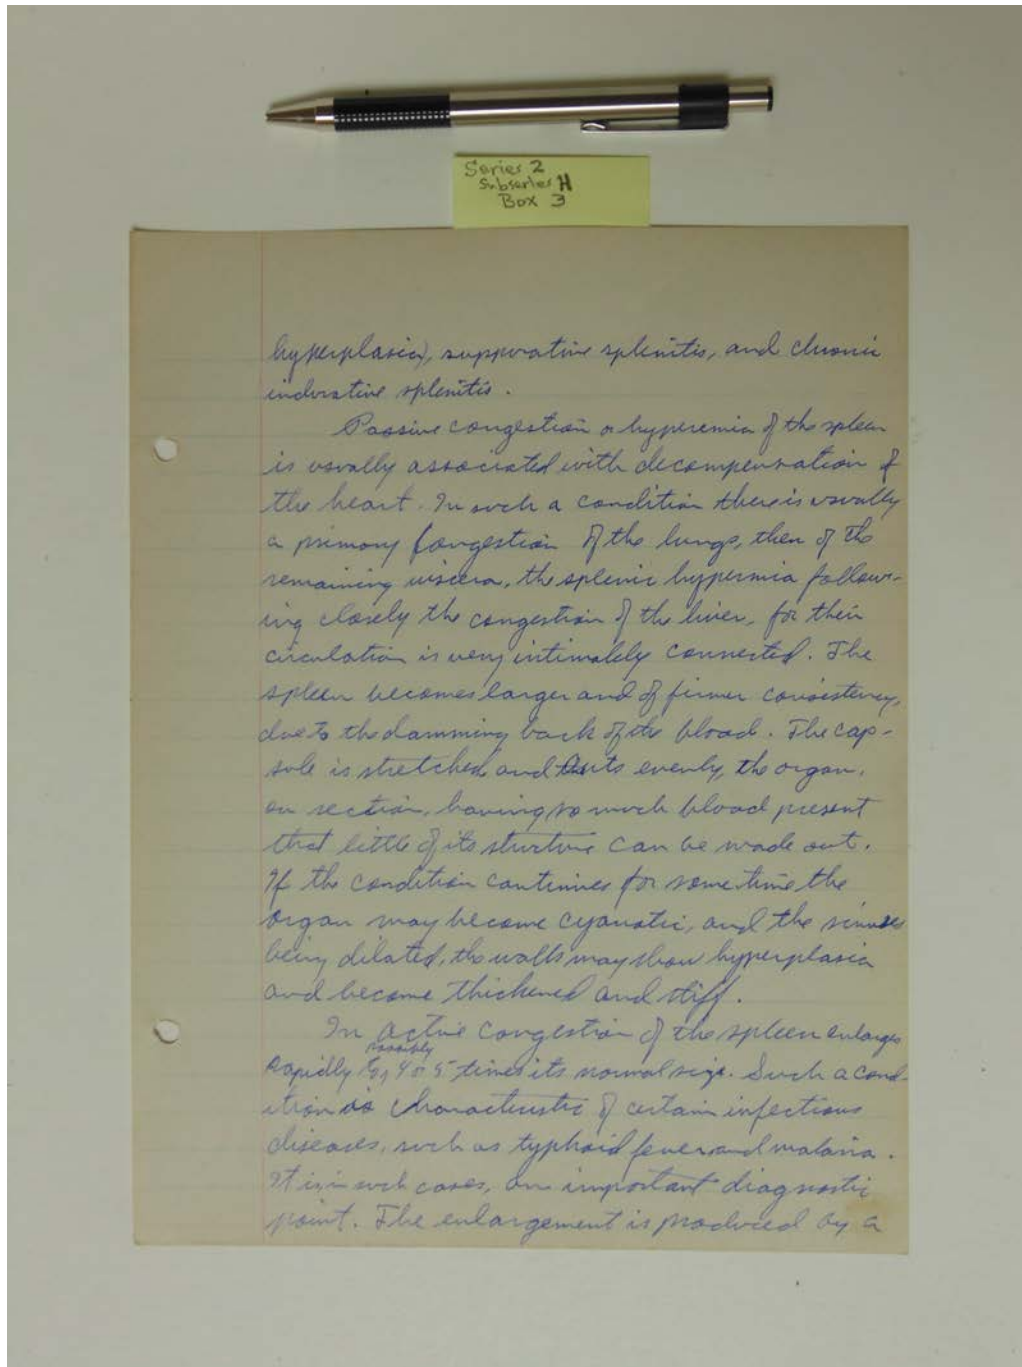 Series 2
Subseries H
Box 3
hyperplasia), suppurative splenitis, and chronic
indurative splenitis.
Passive congestion or hyperemia of the spleen
is usually associated with decompensation of
the heart. In such a condition there is usually
a primary congestion of the lungs, then of the
remaining viscera, the splenic hypermia follow-
ing closely the congestion of the liver, for their
circulation is very intimately connected. The
spleen becomes larger and of firmer consistency,
due to the damming back of its blood. The cap-
sule is stretched and cuts evenly, the organ,
on section, having so much blood present
that little of its structure can be made out.
If the condition continues for some time the
organ may become cyanotic, and the sinuses
being dilated, the walls may show hyperplasia
and become thickened and stiff.
In active congestion of the spleen enlarges
rapidly possibly to 4 or 5 times its normal size. Such a cond-
ition is characteristic of certain infectious
diseases, such as typhoid fever and malaria.
It is, in such cases, an important diagnostic
point. The enlargement is produced by a